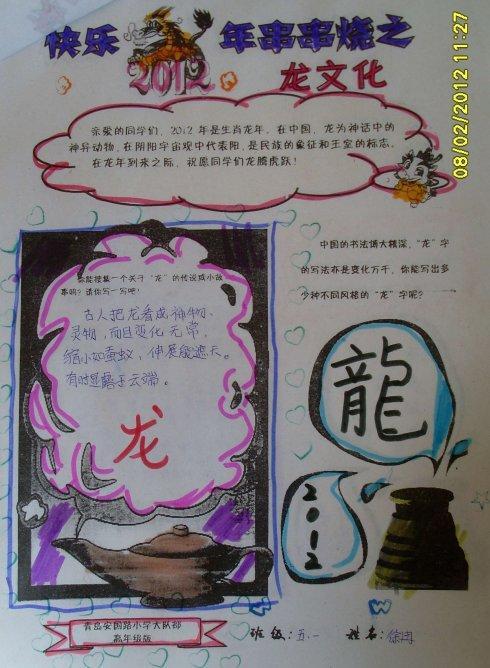 快乐 年串串烧之
2012 龙文化
08/02/2012 11:27
亲爱的同学们，2012年是生肖龙年，在中国，龙为神话中的
神异动物，在阴阳宇宙观中代表阳，是民族的象征和王室的标志。
在龙年到来之际，祝愿同学们龙腾虎跃！
你能搜集一个关于“龙”的传说或小故
事吗？请你写一写吧！
古人把龙看成神物、
灵物，而且变化无常，
缩小如蚕蚁，伸展能遮天。
有时显露于云端。
龙
中国的书法博大精深，“龙”字
的写法亦是变化万千，你能写出多
少种不同风格的“龙”字呢？
龍
2012
青岛安国路小学大队部
高年级版
班级：五.一 姓名：徐